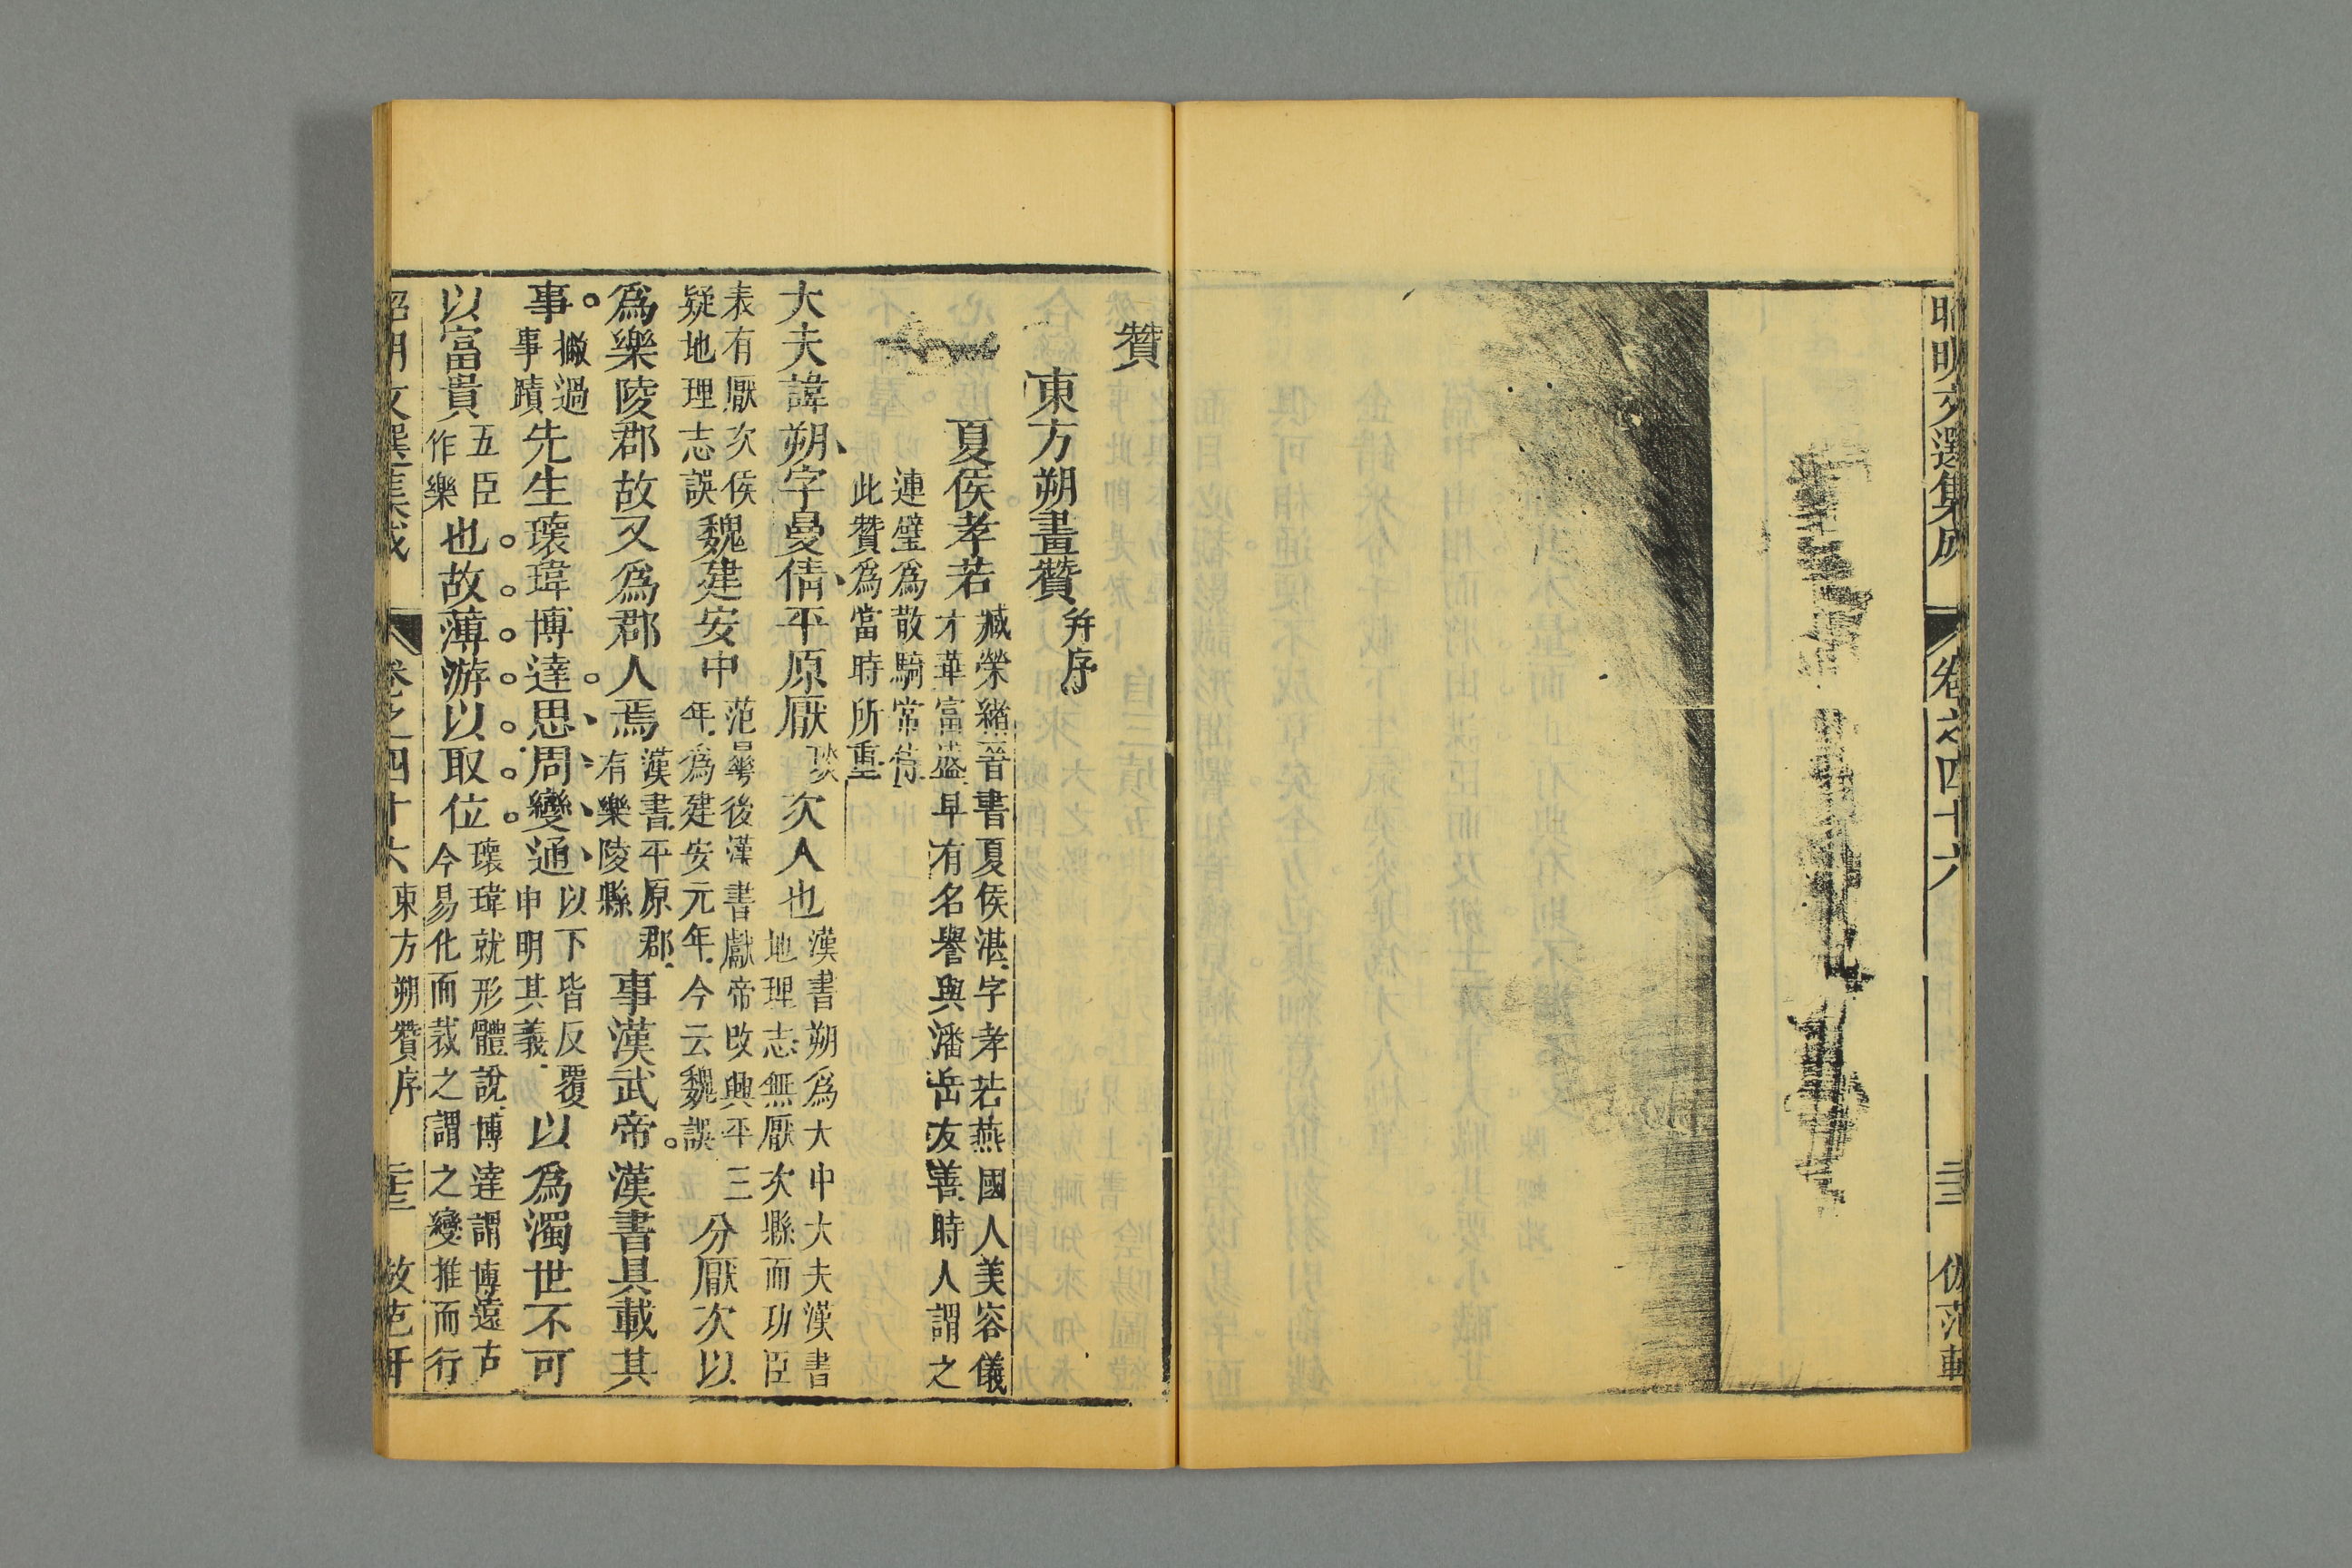 昭明文選集成 卷之四十六 三十三 倣范軒
贊
東方朔畫贊 并序
夏侯孝若 臧榮緒晉書夏侯湛字孝若燕國人美容儀
才華富盛早有名譽與潘岳友善時人謂之
連璧為散騎常侍
此贊為當時所重
大夫諱朔字曼倩平原厭 琰 次人也 漢書朔為大中大夫漢書
地理志無厭次縣而功臣
表有厭次侯
疑地理志誤
魏建安中 范曅後漢書獻帝改興平三
年為建安元年今云魏誤
分厭次以
為樂陵郡故又為郡人焉 漢書平原郡
有樂陵縣
事漢武帝漢書具載其
事 撇過
事蹟
先生瓌瑋博達思周變通 以下皆反覆
申明其義
以為濁世不可
以富貴 五臣
作樂
也故薄游以取位 瓌瑋就形體說博達謂博遠古
今易化而裁之謂之變推而行
昭明文選集成 卷之四十六 東方朔贊序 三十三 倣范軒